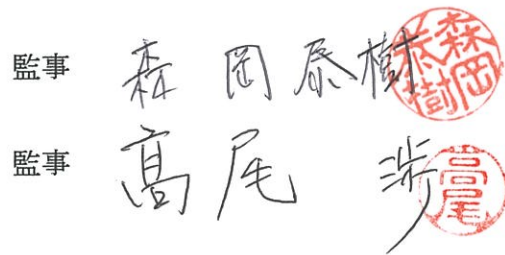 監事 森岡泰樹 森岡泰樹
監事 髙尾渉 高尾